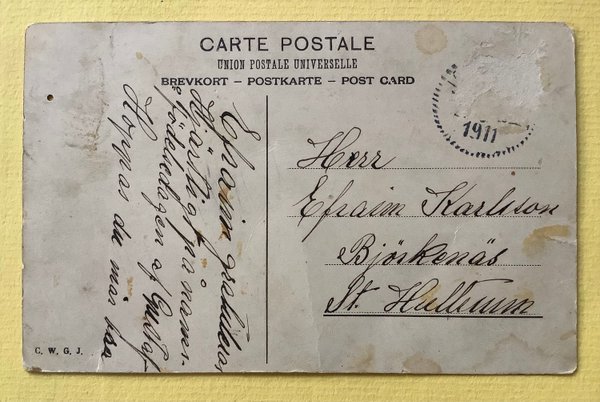 CARTE POSTALE
UNION POSTALE UNIVERSELLE
BREVKORT – POSTKARTE – POST CARD
1911
Efraim gratuleras
Hjärtlig på namn-
o födelsedagen af Gustaf
Hoppas du mår bra
Herr
Efraim Karlsson
Björkenäs
St. Hultrum
C. W. G. J.